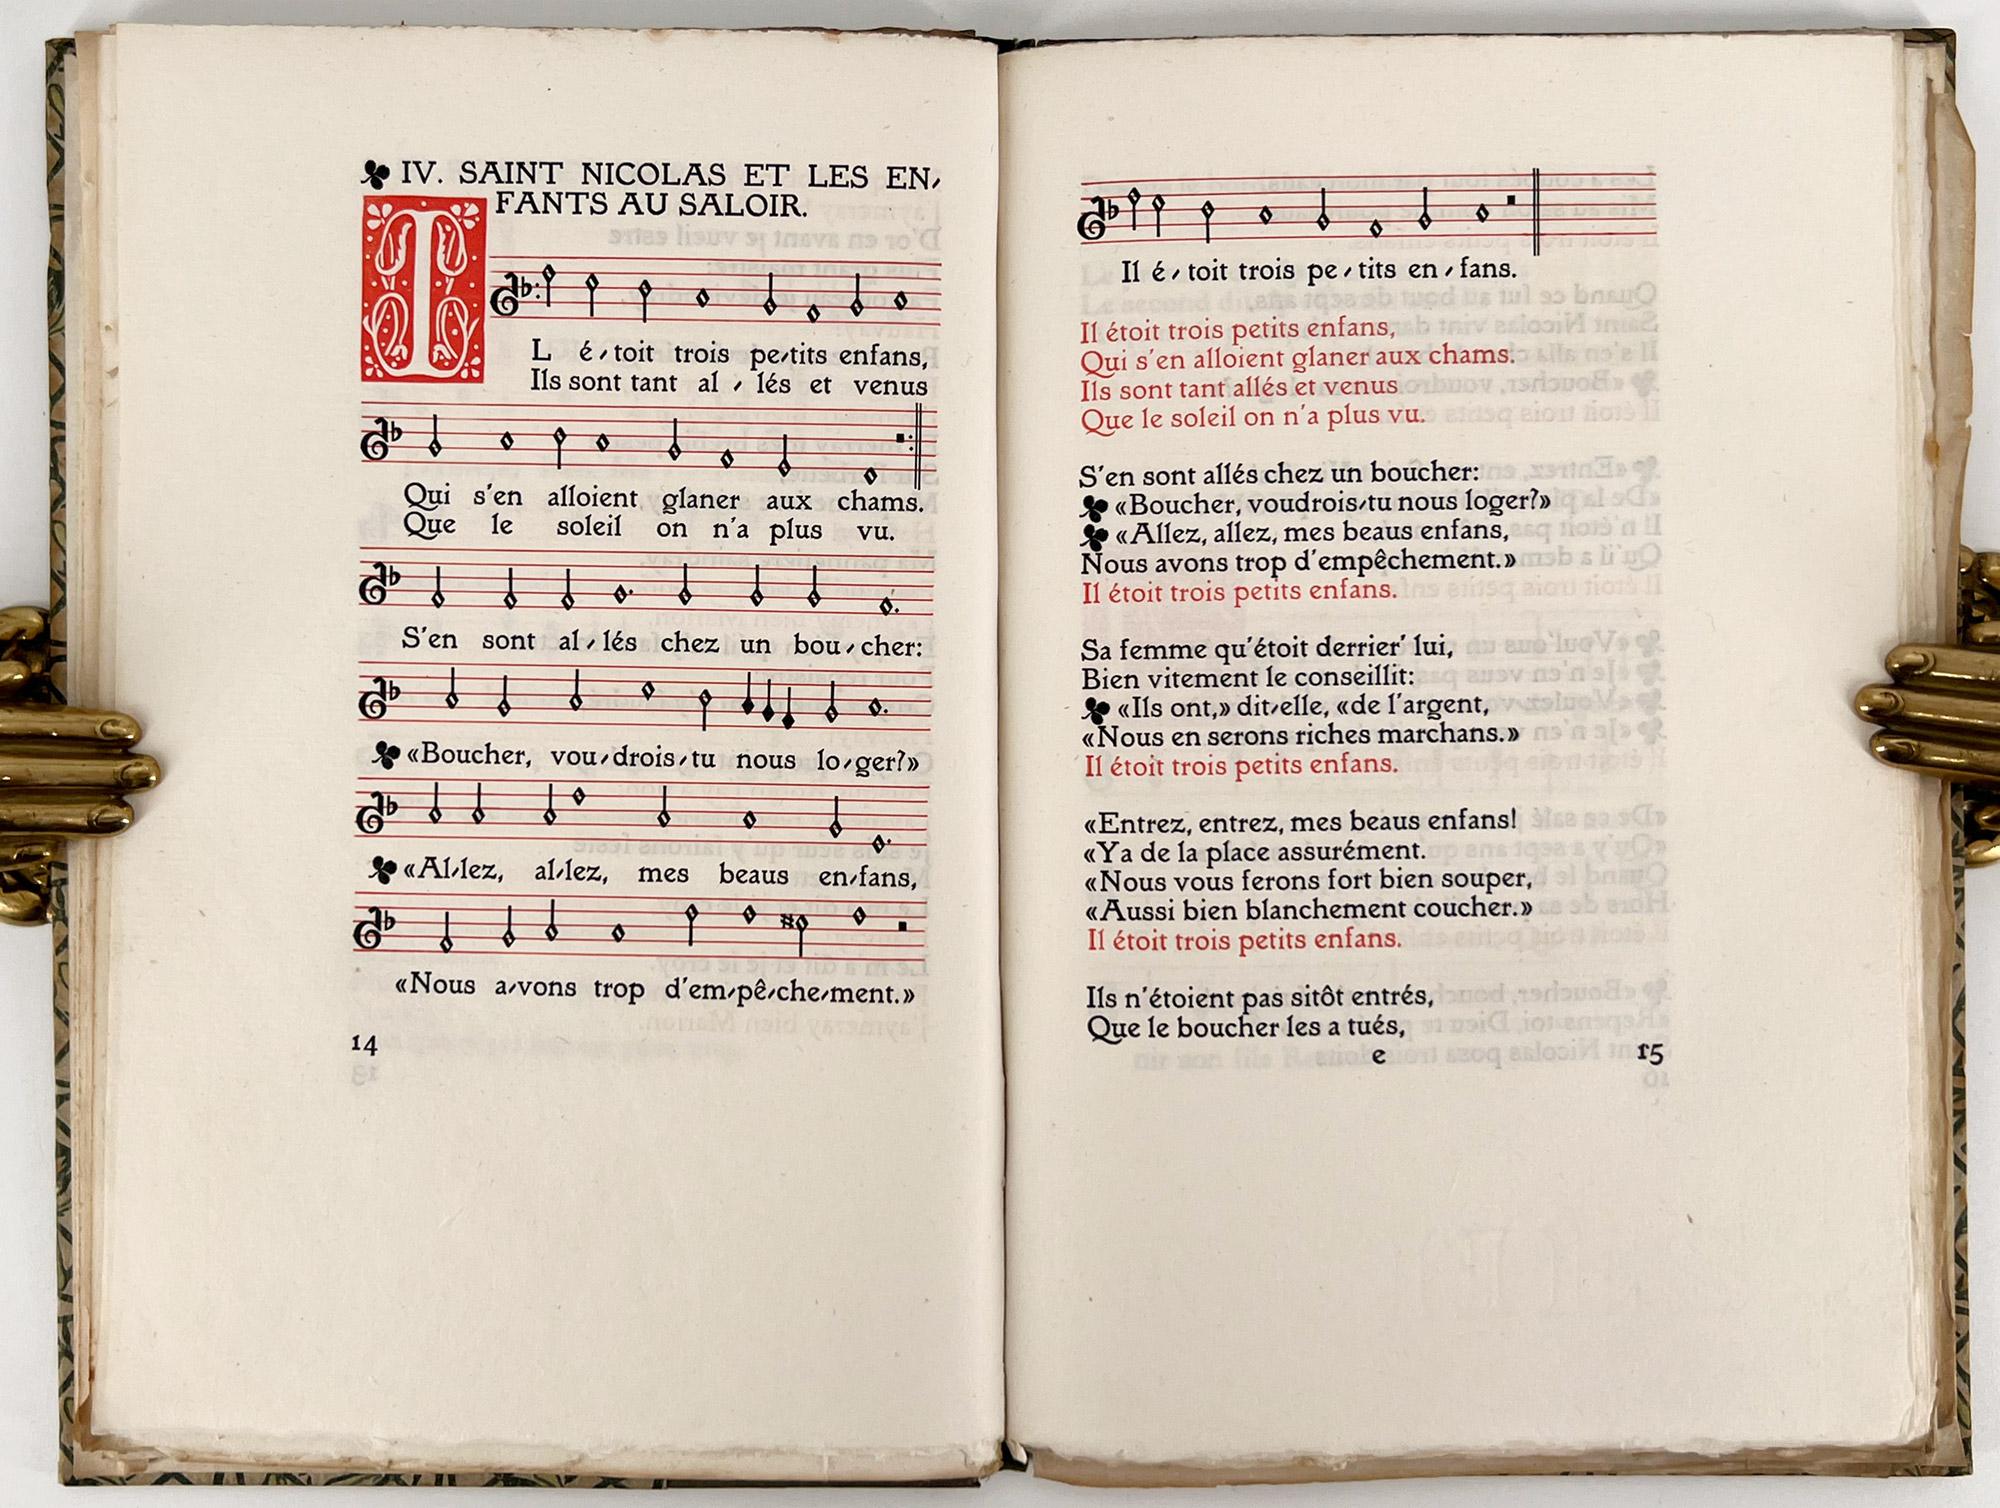 IV. SAINT NICOLAS ET LES EN-
FANTS AU SALOIR.
IL é-toit trois pe-tits enfans,
Ils sont tant al-lés et venus
Qui s'en alloient glaner aux chams.
Que le soleil on n'a plus vu.
S'en sont al-lés chez un bou-cher:
«Boucher, vou-drois-tu nous lo-ger?»
«Al-lez, al-lez, mes beaus en-fans,
«Nous a-vons trop d'em-pê-che-ment.»
14
Il é-toit trois pe-tits en-fans.
Il étoit trois petits enfans,
Qui s'en alloient glaner aux chams.
Ils sont tant allés et venus
Que le soleil on n'a plus vu.
S'en sont allés chez un boucher:
«Boucher, voudrois-tu nous loger?»
«Allez, allez, mes beaus enfans,
Nous avons trop d'empêchement.»
Il étoit trois petits enfans.
Sa femme qu'étoit derrier' lui,
Bien vitement le conseillit:
«Ils ont,» dit-elle, «de l'argent,
«Nous en serons riches marchans.»
Il étoit trois petits enfans.
«Entrez, entrez, mes beaus enfans!
«Ya de la place assurément.
«Nous vous ferons fort bien souper,
«Aussi bien blanchement coucher.»
Il étoit trois petits enfans.
Ils n'étoient pas sitôt entrés,
Que le boucher les a tués,
e
15